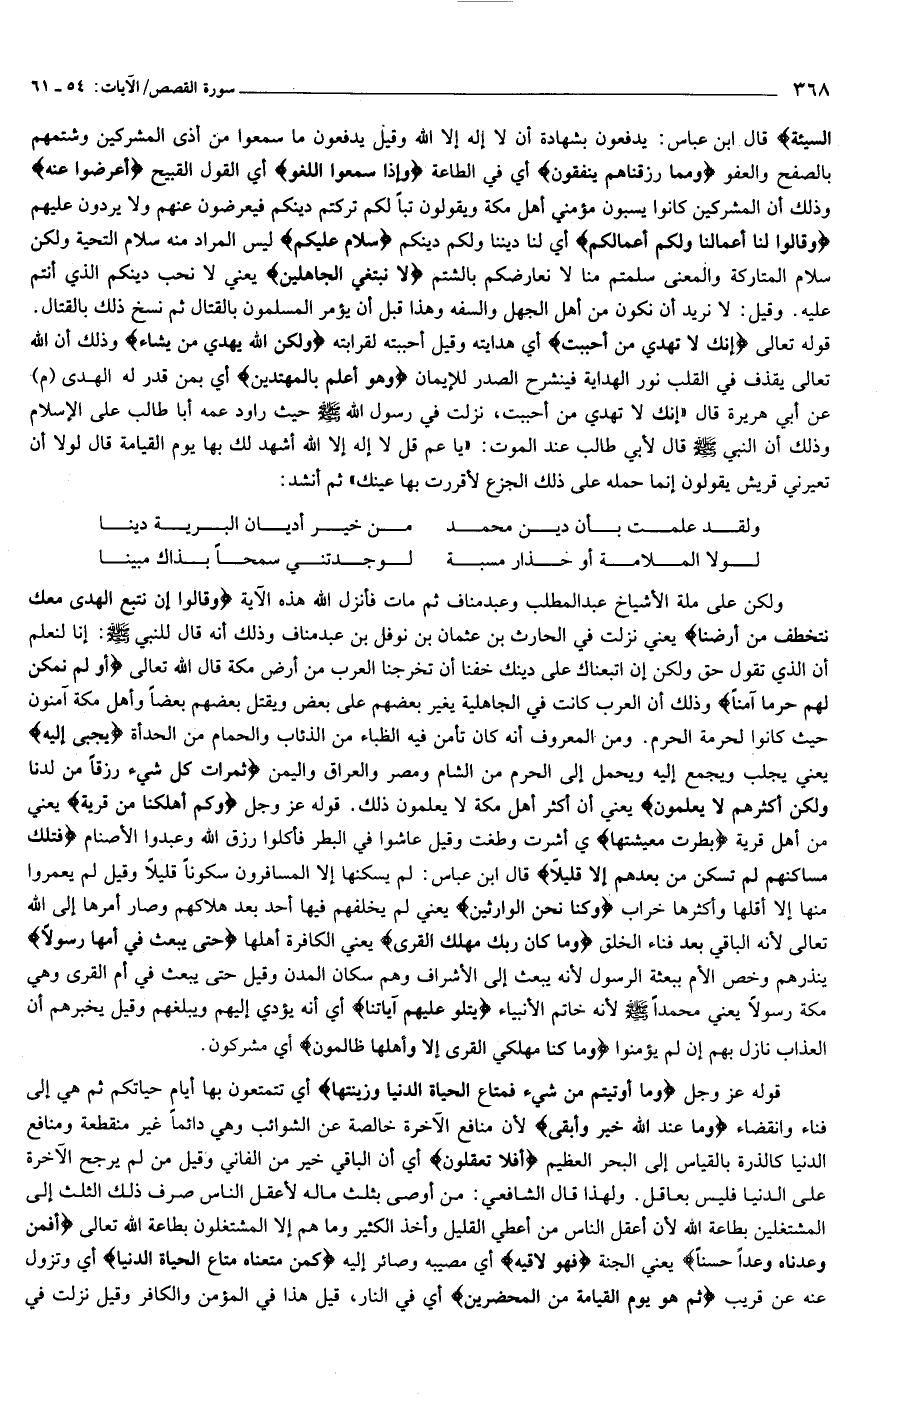 ٣٦٨ سورة القصص/ الآيات: ٥٤ ـ ٦١
السيئة﴾ قال ابن عباس: يدفعون بشهادة أن لا إله إلا الله وقيل يدفعون ما سمعوا من أذى المشركين وشتمهم
بالصفح والعفو ﴿ومما رزقناهم ينفقون﴾ أي في الطاعة ﴿وإذا سمعوا اللغو﴾ أي القول القبيح ﴿أعرضوا عنه﴾
وذلك أن المشركين كانوا يسبون مؤمني أهل مكة ويقولون تباً لكم تركتم دينكم فيعرضون عنهم ولا يردون عليهم
﴿وقالوا لنا أعمالنا ولكم أعمالكم﴾ أي لنا ديننا ولكم دينكم ﴿سلام عليكم﴾ ليس المراد منه سلام التحية ولكن
سلام المتاركة والمعنى سلمتم منا لا نعارضكم بالشتم ﴿لا نبتغي الجاهلين﴾ يعني لا نحب دينكم الذي أنتم
عليه. وقيل: لا نريد أن نكون من أهل الجهل والسفه وهذا قبل أن يؤمر المسلمون بالقتال ثم نسخ ذلك بالقتال.
قوله تعالى ﴿إنك لا تهدي من أحببت﴾ أي هدايته وقيل أحببته لقرابته ﴿ولكن الله يهدي من يشاء﴾ وذلك أن الله
تعالى يقذف في القلب نور الهداية فينشرح الصدر للإيمان ﴿وهو أعلم بالمهتدين﴾ أي بمن قدر له الهدى (م)
عن أبي هريرة قال «إنك لا تهدي من أحببت، نزلت في رسول الله ﷺ حيث راود عمه أبا طالب على الإسلام
وذلك أن النبي ﷺ قال لأبي طالب عند الموت: «يا عم قل لا إله إلا الله أشهد لك بها يوم القيامة قال لولا أن
تعيرني قريش يقولون إنما حمله على ذلك الجزع لأقررت بها عينك» ثم أنشد:
ولقد علمت بأن دين محمد من خير أديان البرية دينا
لولا الملامة أو حذار مسبة لوجدتني سمحاً بذاك مبينا
ولكن على ملة الأشياخ عبدالمطلب وعبدمناف ثم مات فأنزل الله هذه الآية ﴿وقالوا إن نتبع الهدى معك
نتخطف من أرضنا﴾ يعني نزلت في الحارث بن عثمان بن نوفل بن عبدمناف وذلك أنه قال للنبي ﷺ: إنا لنعلم
أن الذي تقول حق ولكن إن اتبعناك على دينك خفنا أن تخرجنا العرب من أرض مكة قال الله تعالى ﴿أو لم نمكن
لهم حرما آمناً﴾ وذلك أن العرب كانت في الجاهلية يغير بعضهم على بعض ويقتل بعضهم بعضاً وأهل مكة آمنون
حيث كانوا لحرمة الحرم. ومن المعروف أنه كان تأمن فيه الظباء من الذئاب والحمام من الحدأة ﴿يجبى إليه﴾
يعني يجلب ويجمع إليه ويحمل إلى الحرم من الشام ومصر والعراق واليمن ﴿ثمرات كل شيء رزقاً من لدنا
ولكن أكثرهم لا يعلمون﴾ يعني أن أكثر أهل مكة لا يعلمون ذلك. قوله عز وجل ﴿وكم أهلكنا من قرية﴾ يعني
من أهل قرية ﴿بطرت معيشتها﴾ ي أشرت وطغت وقيل عاشوا في البطر فأكلوا رزق الله وعبدوا الأصنام ﴿فتلك
مساكنهم لم تسكن من بعدهم إلا قليلاً﴾ قال ابن عباس: لم يسكنها إلا المسافرون سكوناً قليلاً وقيل لم يعمروا
منها إلا أقلها وأكثرها خراب ﴿وكنا نحن الوارثين﴾ يعني لم يخلفهم فيها أحد بعد هلاكهم وصار أمرها إلى الله
تعالى لأنه الباقي بعد فناء الخلق ﴿وما كان ربك مهلك القرى﴾ يعني الكافرة أهلها ﴿حتى يبعث في أمها رسولاً﴾
ينذرهم وخص الأم ببعثة الرسول لأنه يبعث إلى الأشراف وهم سكان المدن وقيل حتى يبعث في أم القرى وهي
مكة رسولاً يعني محمداً ﷺ لأنه خاتم الأنبياء ﴿يتلو عليهم آياتنا﴾ أي أنه يؤدي إليهم ويبلغهم وقيل يخبرهم أن
العذاب نازل بهم إن لم يؤمنوا ﴿وما كنا مهلكي القرى إلا وأهلها ظالمون﴾ أي مشركون.
قوله عز وجل ﴿وما أوتيتم من شيء فمتاع الحياة الدنيا وزينتها﴾ أي تتمتعون بها أيام حياتكم ثم هي إلى
فناء وانقضاء ﴿وما عند الله خير وأبقى﴾ لأن منافع الآخرة خالصة عن الشوائب وهي دائماً غير منقطعة ومنافع
الدنيا كالذرة بالقياس إلى البحر العظيم ﴿أفلا تعقلون﴾ أي أن الباقي خير من الفاني وقيل من لم يرجح الآخرة
على الدنيا فليس بعاقل. ولهذا قال الشافعي: من أوصى بثلث ماله لأعقل الناس صرف ذلك الثلث إلى
المشتغلين بطاعة الله لأن أعقل الناس من أعطي القليل وأخذ الكثير وما هم إلا المشتغلون بطاعة الله تعالى ﴿أفمن
وعدناه وعداً حسناً﴾ يعني الجنة ﴿فهو لاقيه﴾ أي مصيبه وصائر إليه ﴿كمن متعناه متاع الحياة الدنيا﴾ أي وتزول
عنه عن قريب ﴿ثم هو يوم القيامة من المحضرين﴾ أي في النار، قيل هذا في المؤمن والكافر وقيل نزلت في